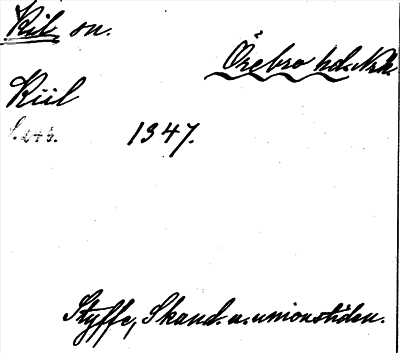 Kil sn.
Örebro hd. Nrk.
Kiil
S. 245.
1347.
Styffe, Skand. u. unionstiden.